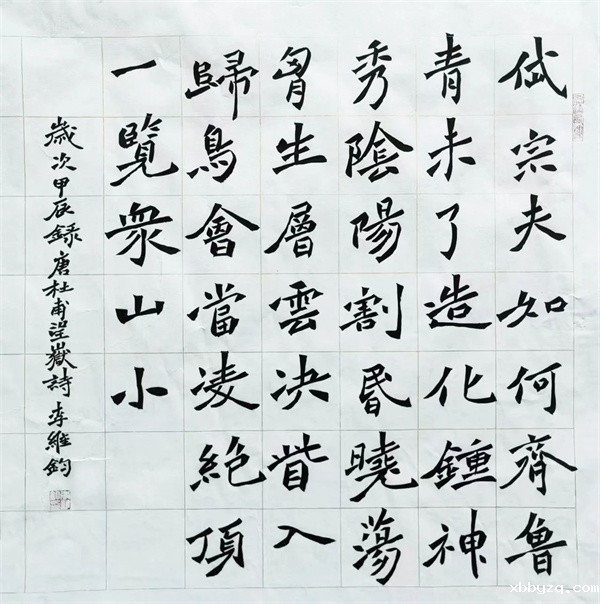 岱宗夫如何齊魯
青未了造化鍾神
秀陰陽割昬曉蕩
胷生層雲决眥入
歸鳥會當凌絕頂
一覽衆山小
歲次甲辰錄唐杜甫望嶽詩 李維鈞
xbbyzq.com